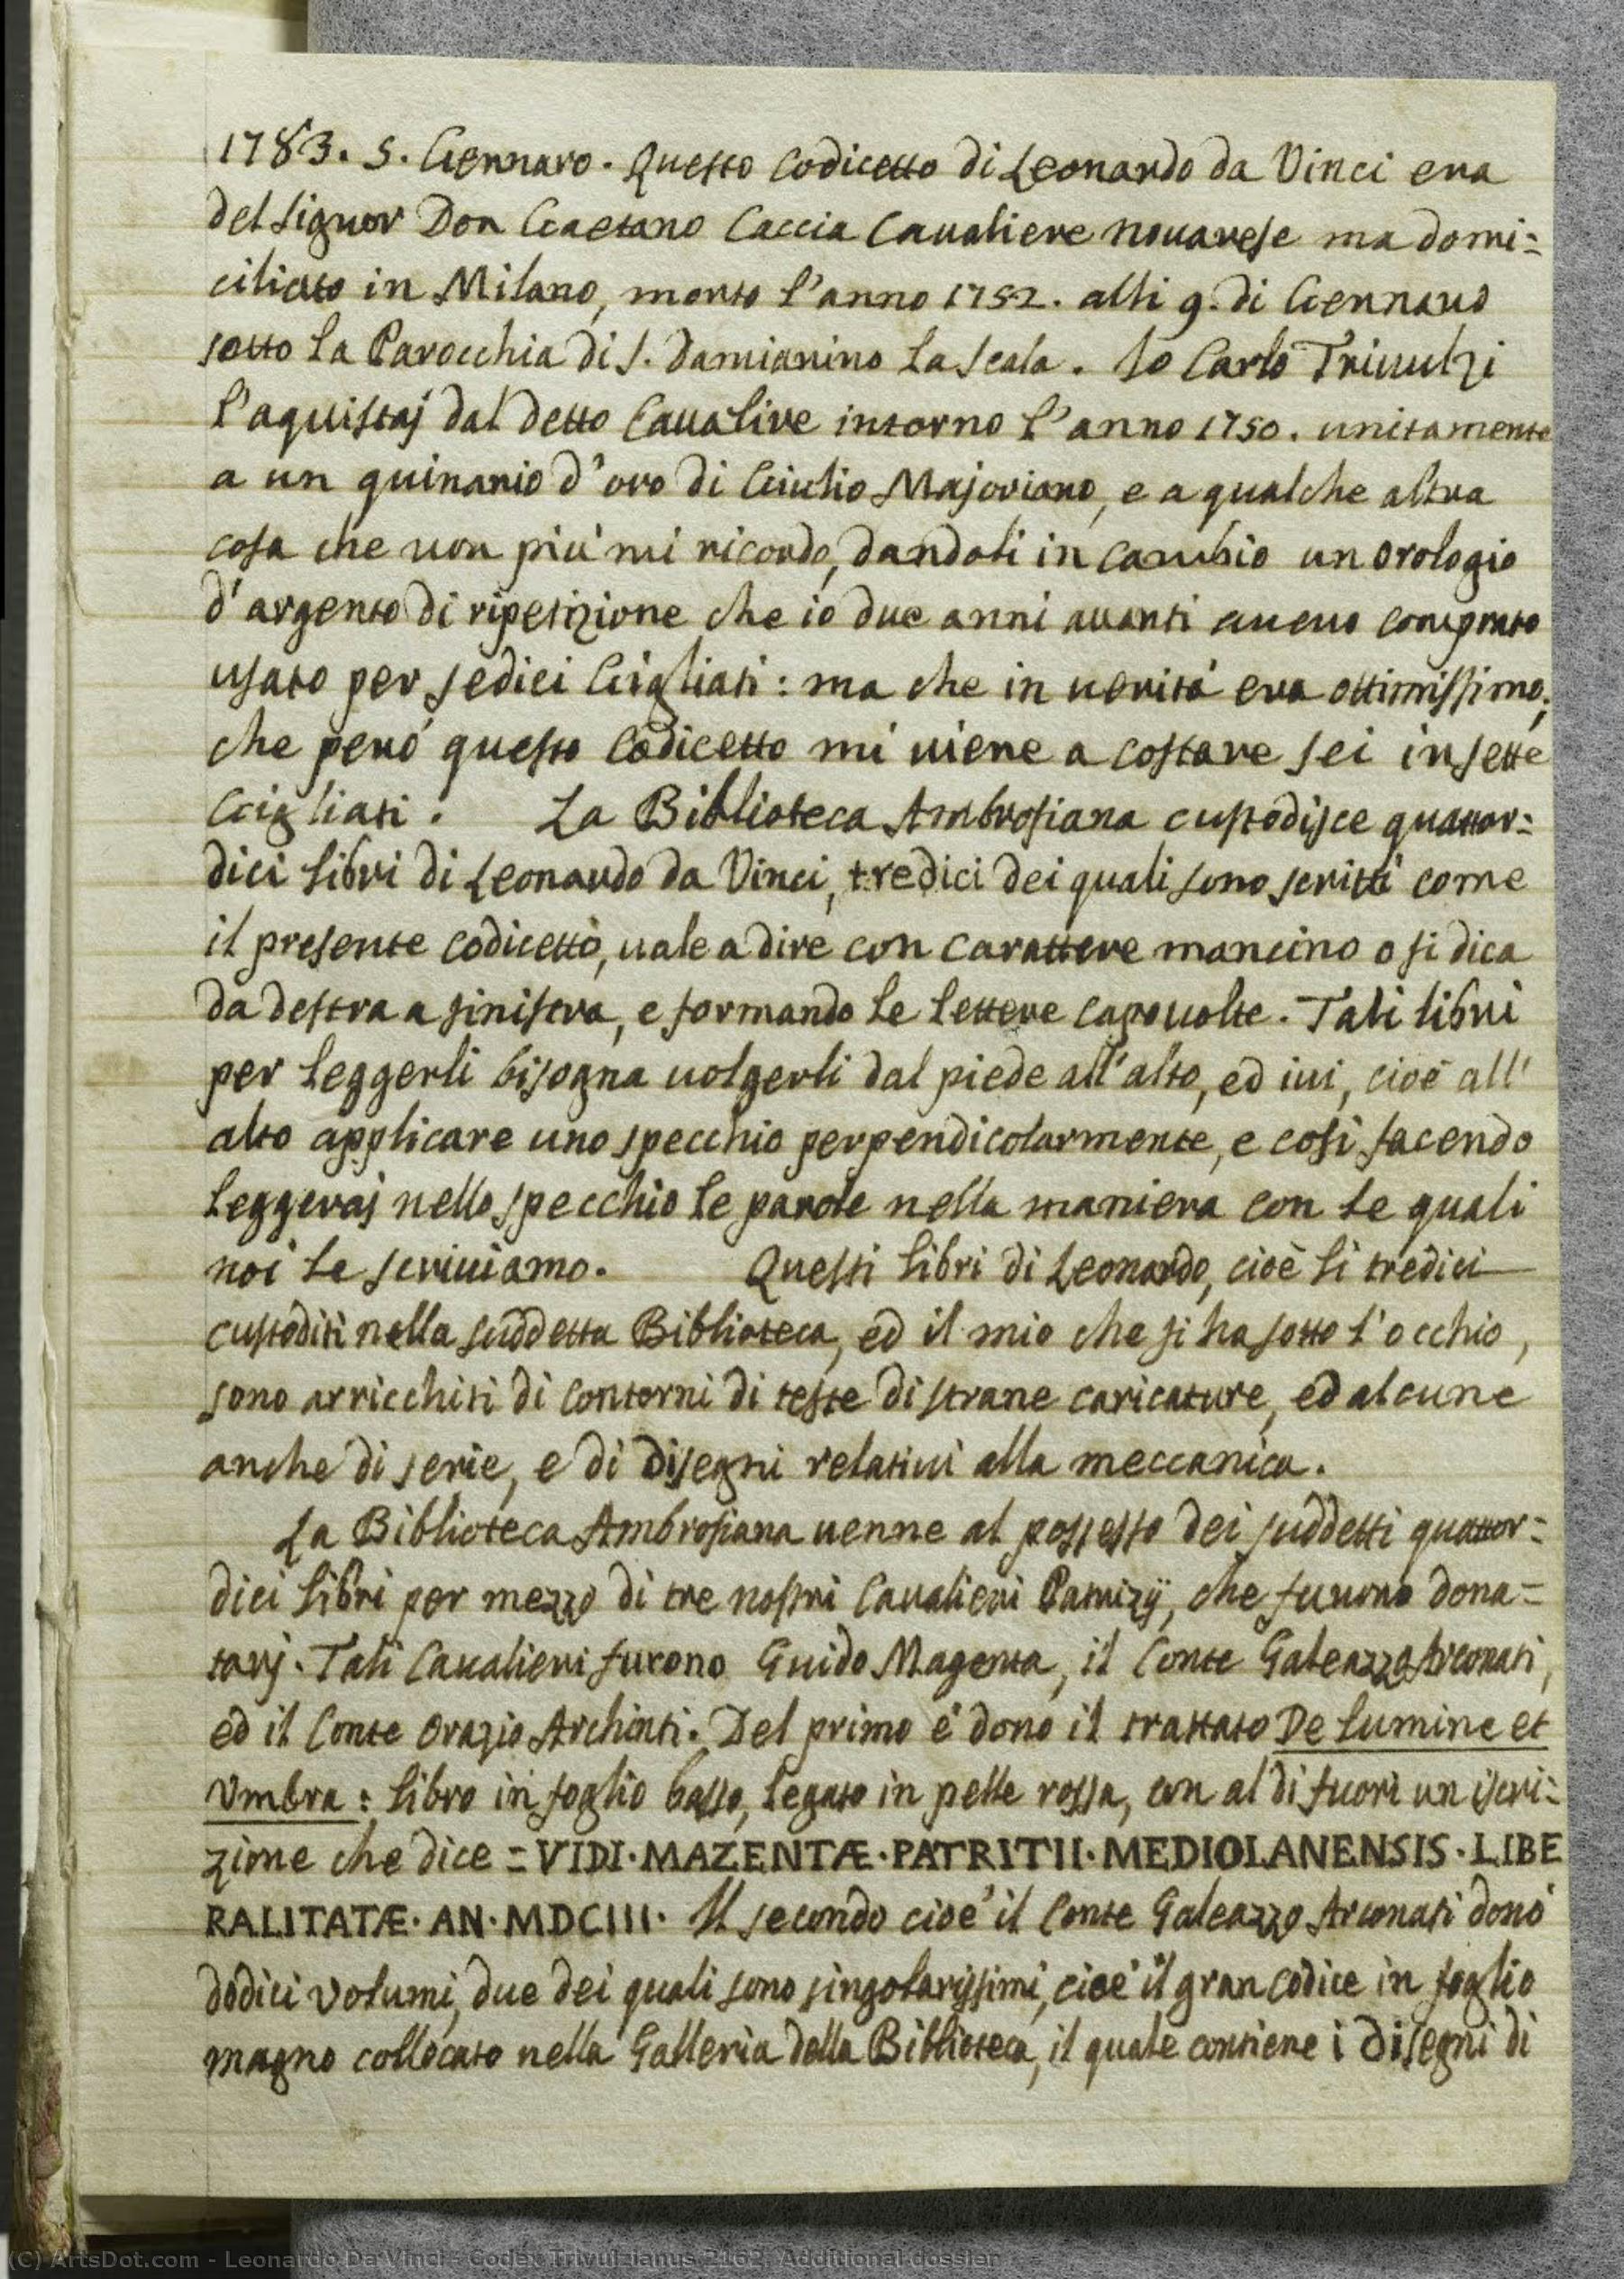 1783. 5. Gennaro. Questo Codicetto di Leonardo da Vinci era
del Signor Don Gaetano Caccia Caualiere nouarese ma domi=
ciliato in Milano, morto l'anno 1752. alli 9. di Gennaro
sotto la Parocchia di S. Damianino la Scala. Io Carlo Triuulzi
l'aquistaj dal detto Caualire intorno l'anno 1750. unitamente
a un quinario d'oro di Giulio Majoriano, e a qualche altra
cosa che non più mi ricordo, dandoli in cambio un orologio
d'argento di ripetizione che io due anni auanti aueuo comprato
usato per sedici Gigliati: ma che in uerità era ottimissimo;
che però questo Codicetto mi uiene a costare sei in sette
Gigliati. La Biblioteca Ambrosiana custodisce quattor=
dici libri di Leonardo da Vinci, tredici dei quali sono scritti come
il presente codicetto, uale a dire con carattere mancino o si dica
da destra a sinistra, e formando le lettere capouolte. Tali libri
per leggerli bisogna uolgerli dal piede all'alto, ed iui, cioè all'
alto applicare uno specchio perpendicolarmente, e così facendo
leggeraj nello specchio le parole nella maniera con le quali
noi le scriuiamo. Questi libri di Leonardo, cioè li tredici
custoditi nella suddetta Biblioteca, ed il mio che si ha sotto l'occhio,
sono arricchiti di contorni di teste di strane caricature, ed alcune
anche di serie, e di disegni relatiui alla meccanica.
La Biblioteca Ambrosiana uenne al possesso dei suddetti quattor=
dici libri per mezzo di tre nostri Caualieri Patrizÿ, che furono dona=
tarj. Tali Caualieri furono Guido Magenta, il Conte Galeazzo Arconati,
ed il Conte Orazio Archinti. Del primo è dono il trattato De Lumine et
Vmbra: libro in foglio basso, legato in pelle rossa, con al di fuori un iscri=
zione che dice = VIDI·MAZENTÆ·PATRITII·MEDIOLANENSIS·LIBE
RALITATÆ·AN·MDCIII· Il secondo cioè il Conte Galeazzo Arconati donò
dodici volumi, due dei quali sono singolarissimi, cioè il gran codice in foglio
magno collocato nella Galleria della Biblioteca, il quale contiene i disegni di
(C) ArtsDot.com - Leonardo Da Vinci - Codex Trivulzianus 2162, Additional dossier